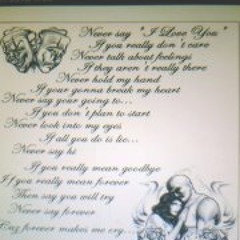 Never say "I Love You"
If you really don't care
Never talk about feelings
If they aren't really there
Never hold my hand
If your gonna break my heart
Never say your going to...
If you don't plan to start
Never look into my eyes
If all you do is lie...
Never say hi
If you really mean goodbye
If you really mean forever
Then say you will try
Never say forever
Cuz forever makes me cry....